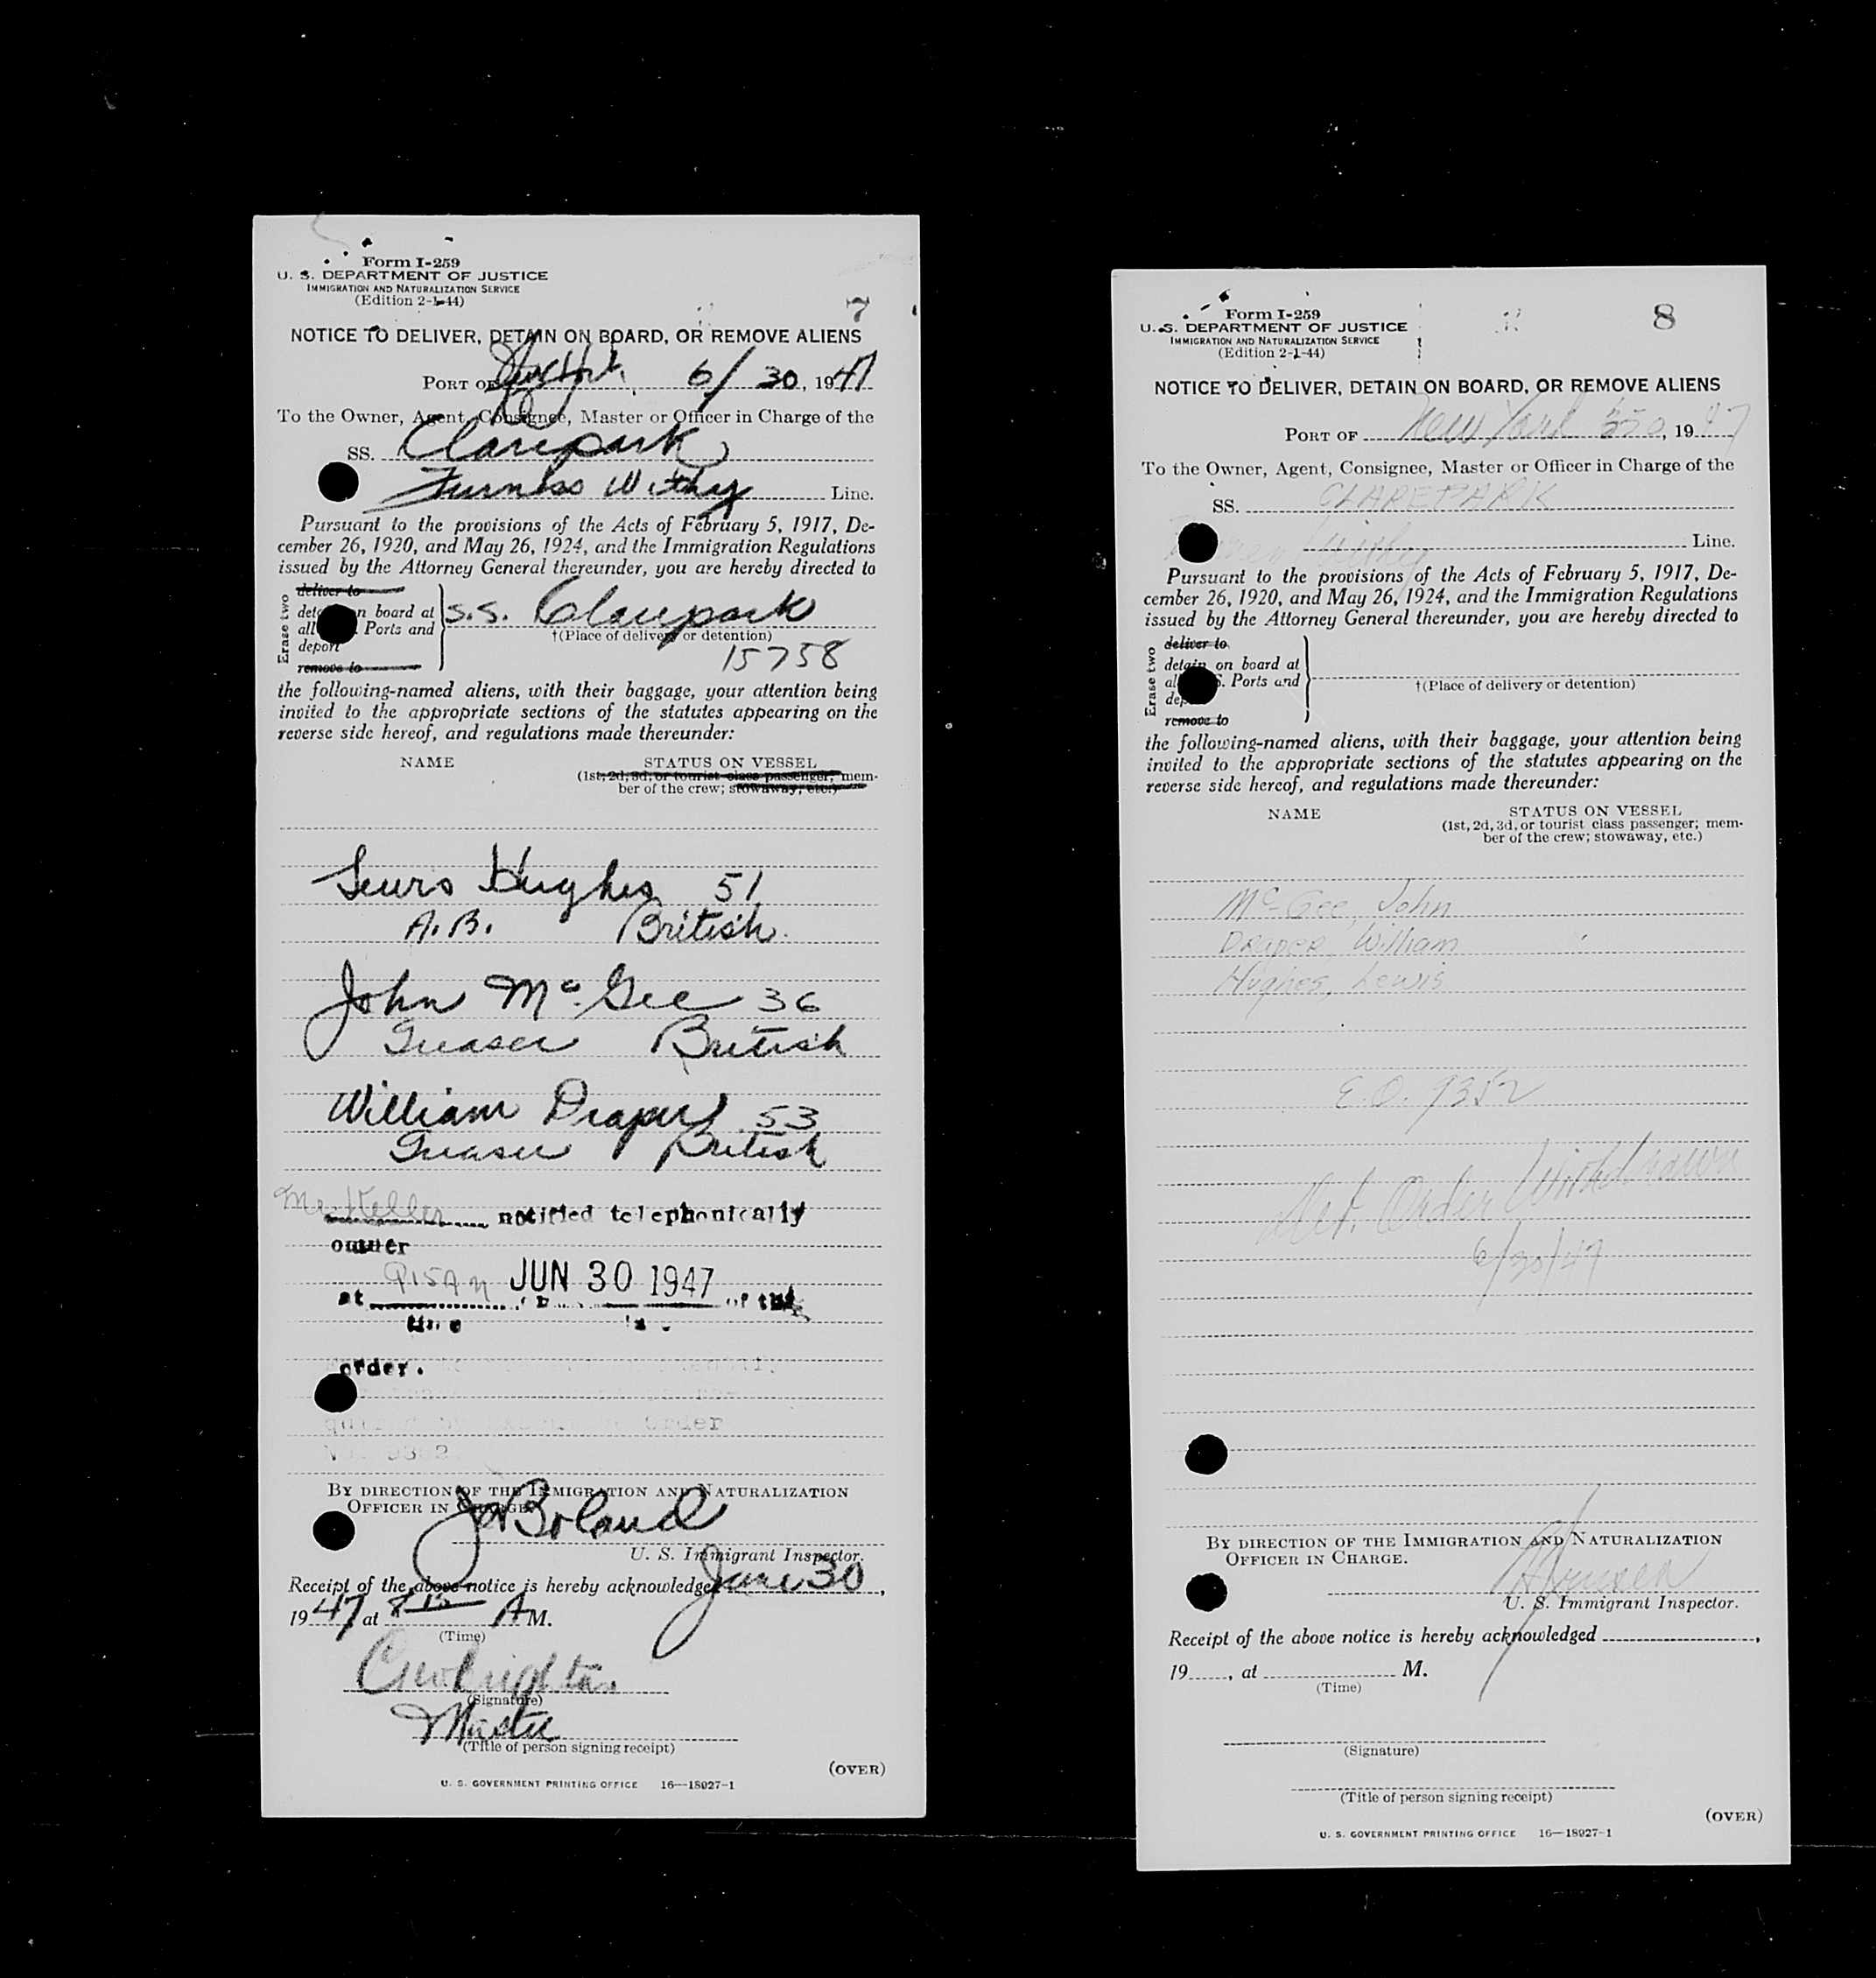 Form I-259
U. S. DEPARTMENT OF JUSTICE
IMMIGRATION AND NATURALIZATION SERVICE
(Edition 2-1-44)
7
NOTICE TO DELIVER, DETAIN ON BOARD, OR REMOVE ALIENS
PORT OF New York, 6/30, 1947
To the Owner, Agent, Consignee, Master or Officer in Charge of the
SS. Clarepark
Furness Withy Line.
Pursuant to the provisions of the Acts of February 5, 1917, De-
cember 26, 1920, and May 26, 1924, and the Immigration Regulations
issued by the Attorney General thereunder, you are hereby directed to
Erase two
deliver to
detain on board at
all Ports and
deport
remove to
S.S. Clarepark
†(Place of delivery or detention)
15758
the following-named aliens, with their baggage, your attention being
invited to the appropriate sections of the statutes appearing on the
reverse side hereof, and regulations made thereunder:
NAME STATUS ON VESSEL
(1st, 2d, 3d, or tourist class passenger; mem-
ber of the crew; stowaway, etc.)
Lewis Hughes 51
A.B. British
John McGee 36
Greaser British
William Draper 53
Greaser British
Mr. Keller notified telephonically
at 915AM JUN 30 1947 of this
order.
order
BY DIRECTION OF THE IMMIGRATION AND NATURALIZATION
OFFICER IN CHARGE.
Boland
U. S. Immigrant Inspector.
Receipt of the above notice is hereby acknowledged June 30,
1947 at 8 15 A M.
(Time)
(Signature)
Master
(Title of person signing receipt)
(OVER)
U. S. GOVERNMENT PRINTING OFFICE 16—18027-1
Form I-259
U. S. DEPARTMENT OF JUSTICE
IMMIGRATION AND NATURALIZATION SERVICE
(Edition 2-1-44)
8
NOTICE TO DELIVER, DETAIN ON BOARD, OR REMOVE ALIENS
PORT OF New York, 1947
To the Owner, Agent, Consignee, Master or Officer in Charge of the
SS. CLAREPARK
Withy Line.
Pursuant to the provisions of the Acts of February 5, 1917, De-
cember 26, 1920, and May 26, 1924, and the Immigration Regulations
issued by the Attorney General thereunder, you are hereby directed to
Erase two
deliver to
detain on board at
all S. Ports and
remove to
†(Place of delivery or detention)
the following-named aliens, with their baggage, your attention being
invited to the appropriate sections of the statutes appearing on the
reverse side hereof, and regulations made thereunder:
NAME STATUS ON VESSEL
(1st, 2d, 3d, or tourist class passenger; mem-
ber of the crew; stowaway, etc.)
McGee, John
Draper, William
Hughes, Lewis
E.O. 9352
Det. Order Withdrawn
6/30/47
BY DIRECTION OF THE IMMIGRATION AND NATURALIZATION
OFFICER IN CHARGE.
U. S. Immigrant Inspector.
Receipt of the above notice is hereby acknowledged,
19, at M.
(Time)
(Signature)
(Title of person signing receipt)
(OVER)
U. S. GOVERNMENT PRINTING OFFICE 16—18027-1